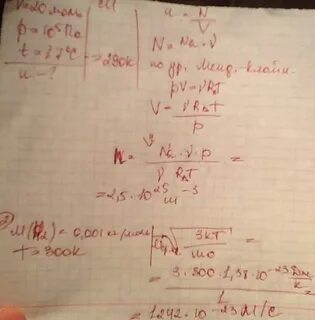 ν=20 моль
p = 10⁵ Па
t = 17°C
=290K
n - ?
СИ
n = N/V
N = Na · ν
по ур. Менд. Клайп.
pV = νRT
V = νRT/p
n = Na · ν · p / νRT =
= 2,5 · 10²⁵ м⁻³
M(H2) = 0,001 кг/моль
T = 300K
√3kT/m0 =
= 3 · 300 · 1,38 · 10⁻²³ Дж/К / 1
= 1242 · 10⁻²³ м/с